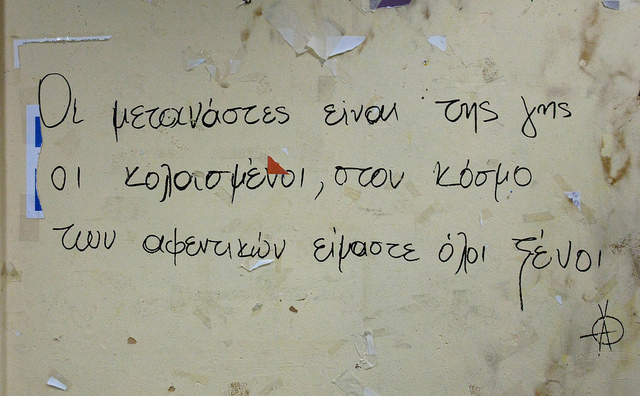 Οι μετανάστες είναι της γης
οι κολασμένοι, στον κόσμο
των αφεντικών είμαστε όλοι ξένοι